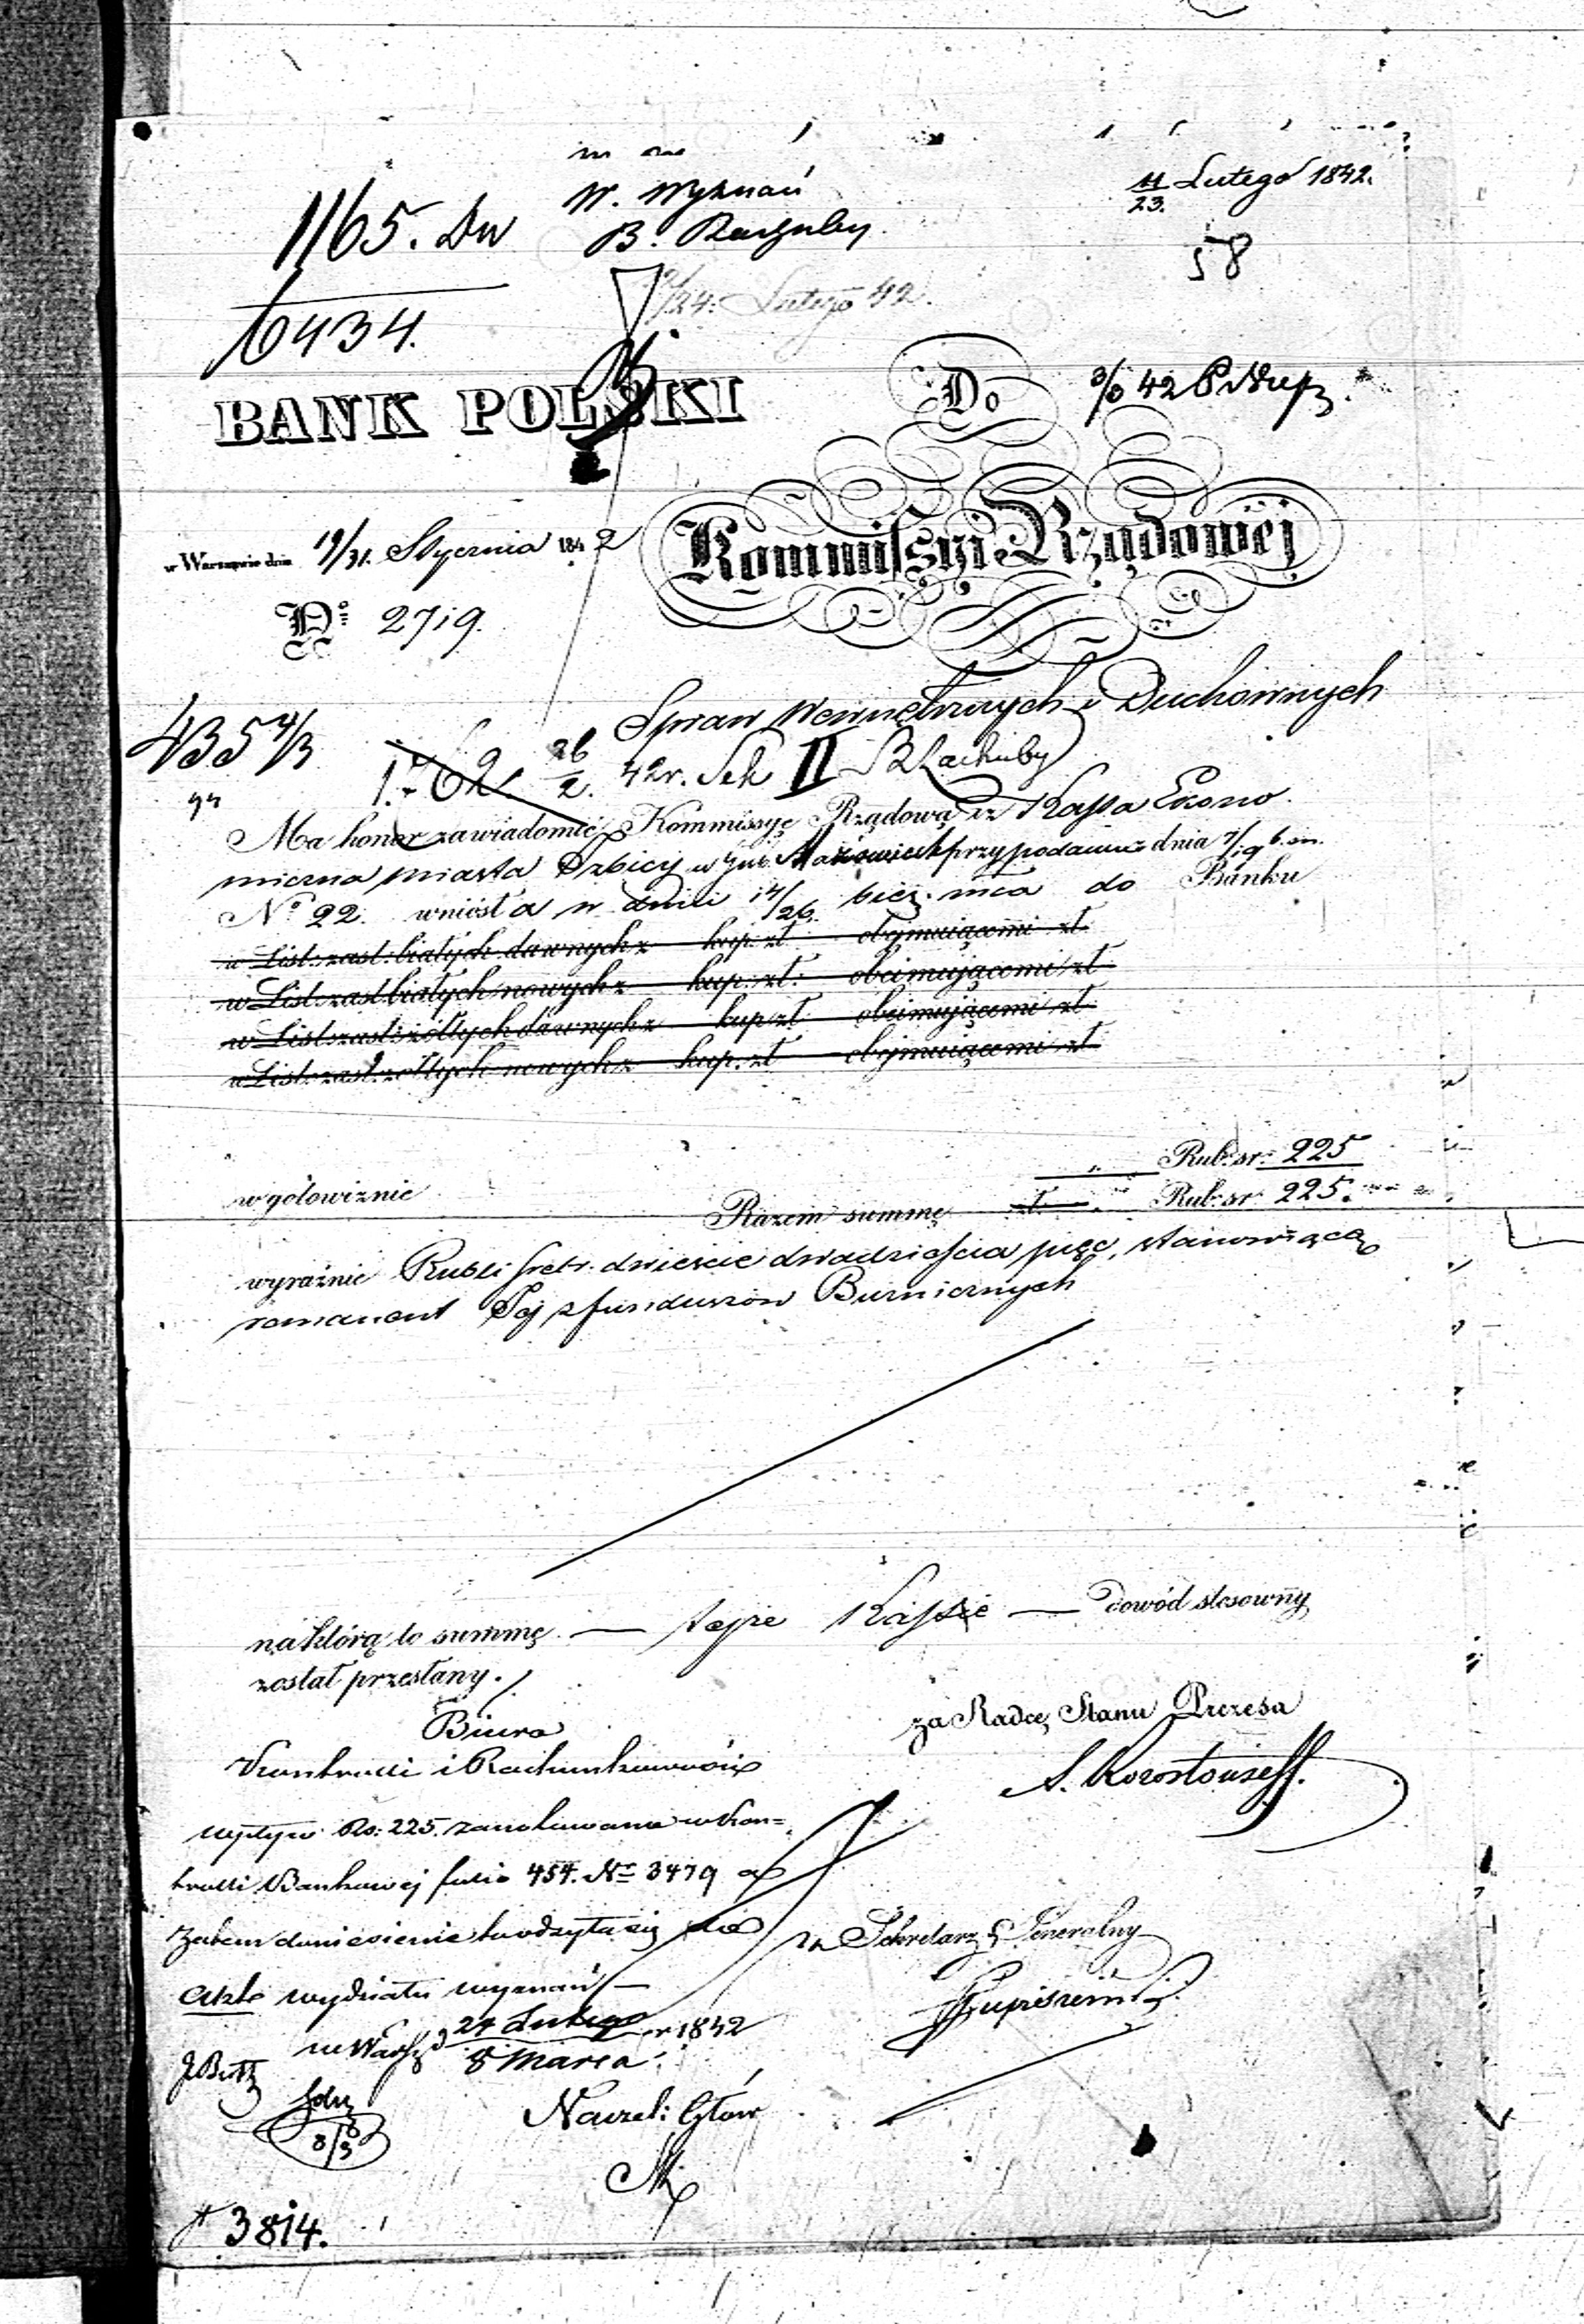 11/23. Lutego 1842.
W. Wyznań
1165. Dw
58
24. Lutego 42.
6434.
BANK POLSKI
Do
w Warszawie dnia 19/31. Stycznia 1842
Kommissyi Rządowéj
No. 2719.
Spraw Wewnętrznych i Duchownych
435 4/3
26/2. 42 r. Sek II
Ma honor zawiadomić Kommissyę Rządową iż Kassa Ekono
miczna miasta Izbicy w Gub. Mazowieck przy podaniu z dnia 7/19 b. m.
No. 22. wniosła w dniu 14/26. bież. mca do Banku
w List: zast: białych dawnych z kup. zł obejmującemi zł
w List: zast białych nowych z kup. zł: obejmującemi zł
w List: zast: żółtych dawnych z kup zł obejmującemi zł
w List: zast: żółtych nowych z kup. zł obejmującemi zł
w gotowiznie " Rub: sr: 225
Razem summę zł " Rub: sr: 225.
wyraźnie Rubli srebr. dwieście dwadzieścia pięć, stanowiącą
remanent Jej z funduszów Burnicznych
na którą to summę — tejże Kassie — dowód stosowny
został przesłany.
Biuro
za Radcę Stanu Prezesa
Kontrolli i Rachunkowości
wpływ Rs: 225. zanotowano w Kon=
trolli Bankowej folio 454. No 3479 a
zatem doniesienie to odsyła się do
Sekretarz Generalny
Akt wydziału wyznań —
w Warsz. 24 Lutego / 8 Marca r 1842
Naczel: Głów
8/3
3814.